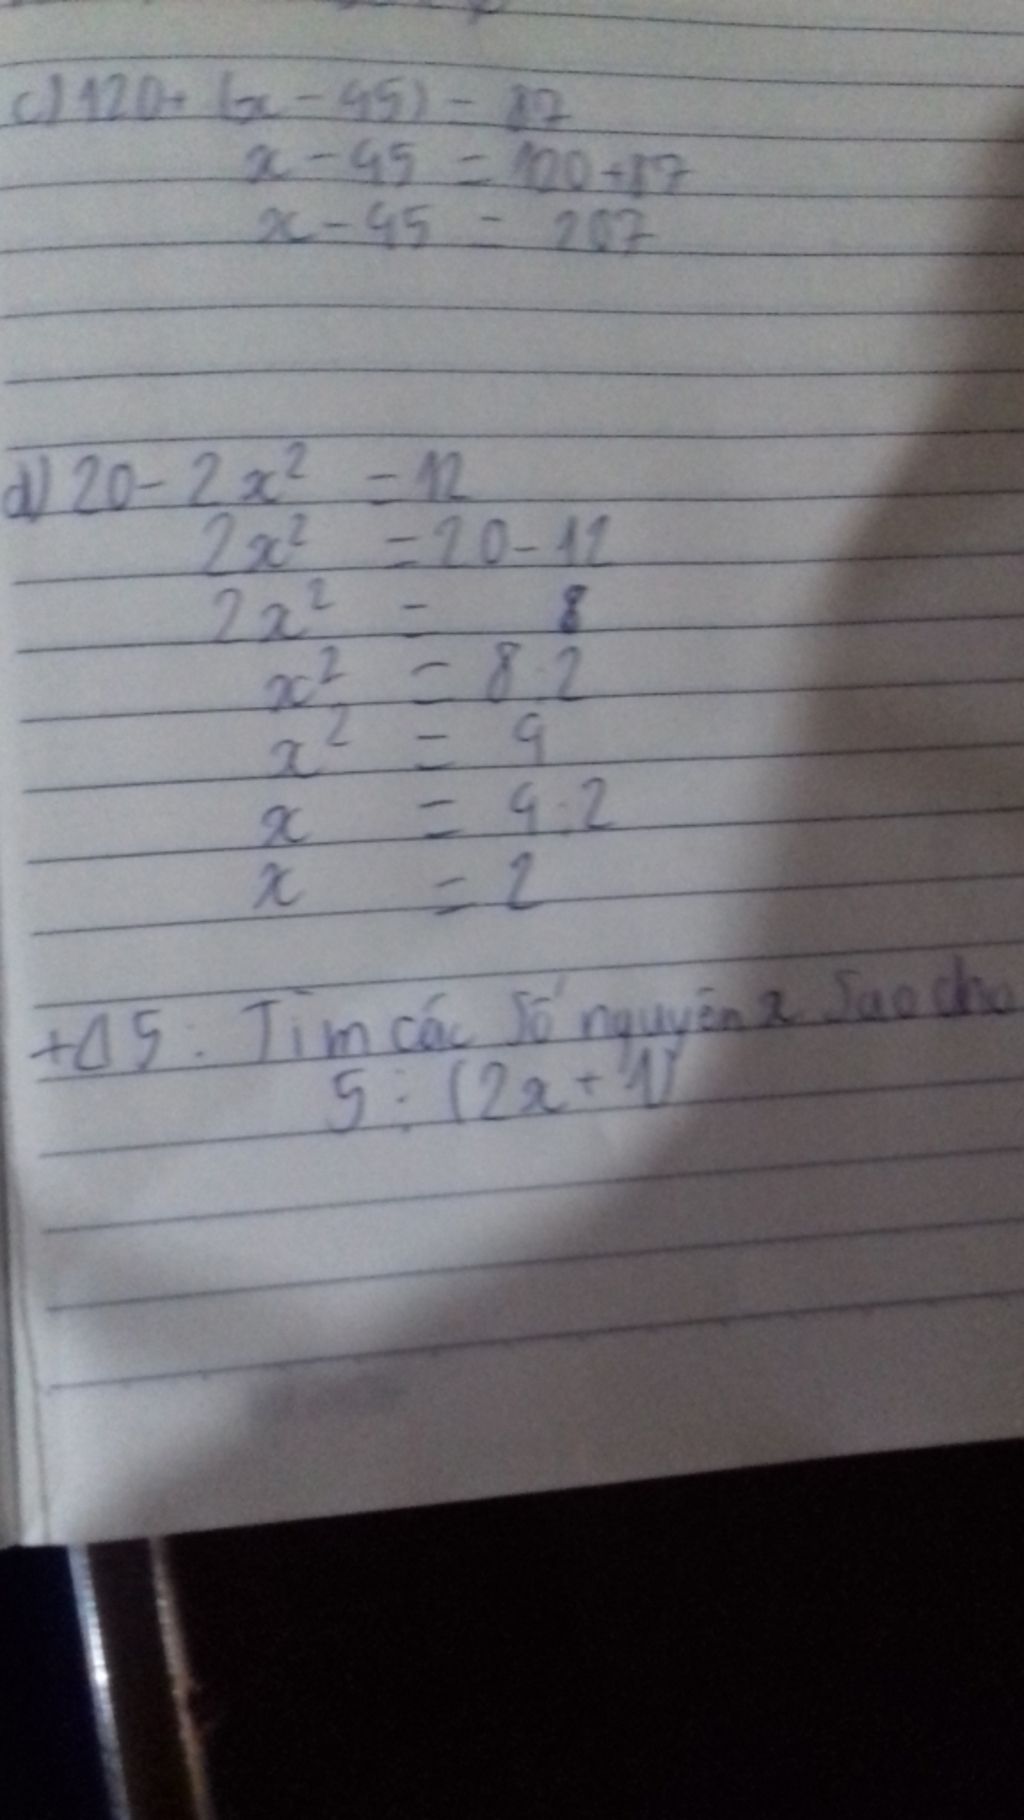 c) 120+ (x - 45) = 87
x - 45 = 120 + 87
x - 45 = 207
d) 20 - 2x² = 12
2x² = 20 - 12
2x² = 8
x² = 8 : 2
x² = 4
x = 4 : 2
x = 2
+Δ5: Tìm các số nguyên x sao cho
5 : (2x + 1)